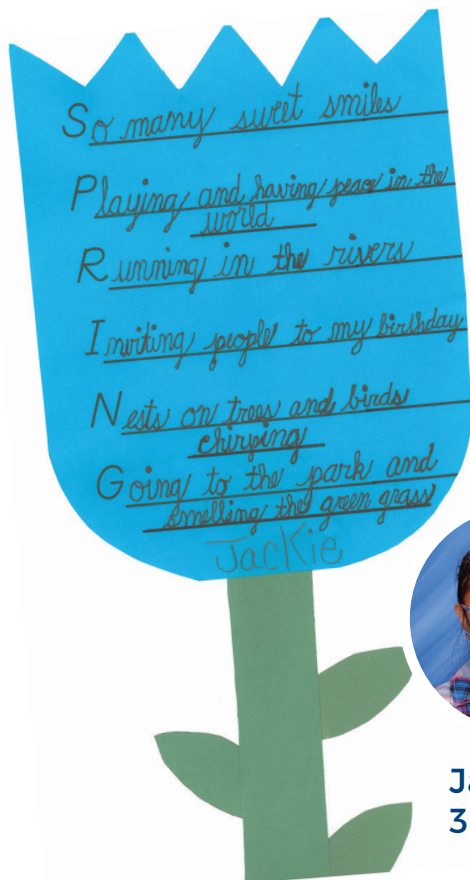 So many sweet smiles
Playing and having peace in the
world
Running in the rivers
Inviting people to my birthday
Nests on trees and birds
chirping
Going to the park and
smelling the green grass
Jackie
Ja
3